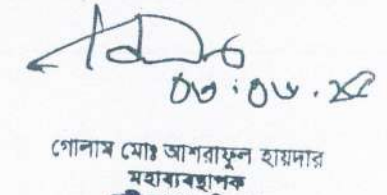 ০৬.০৬.২৫
গোলাম মোঃ আশরাফুল হায়দার
মহাব্যবস্থাপক